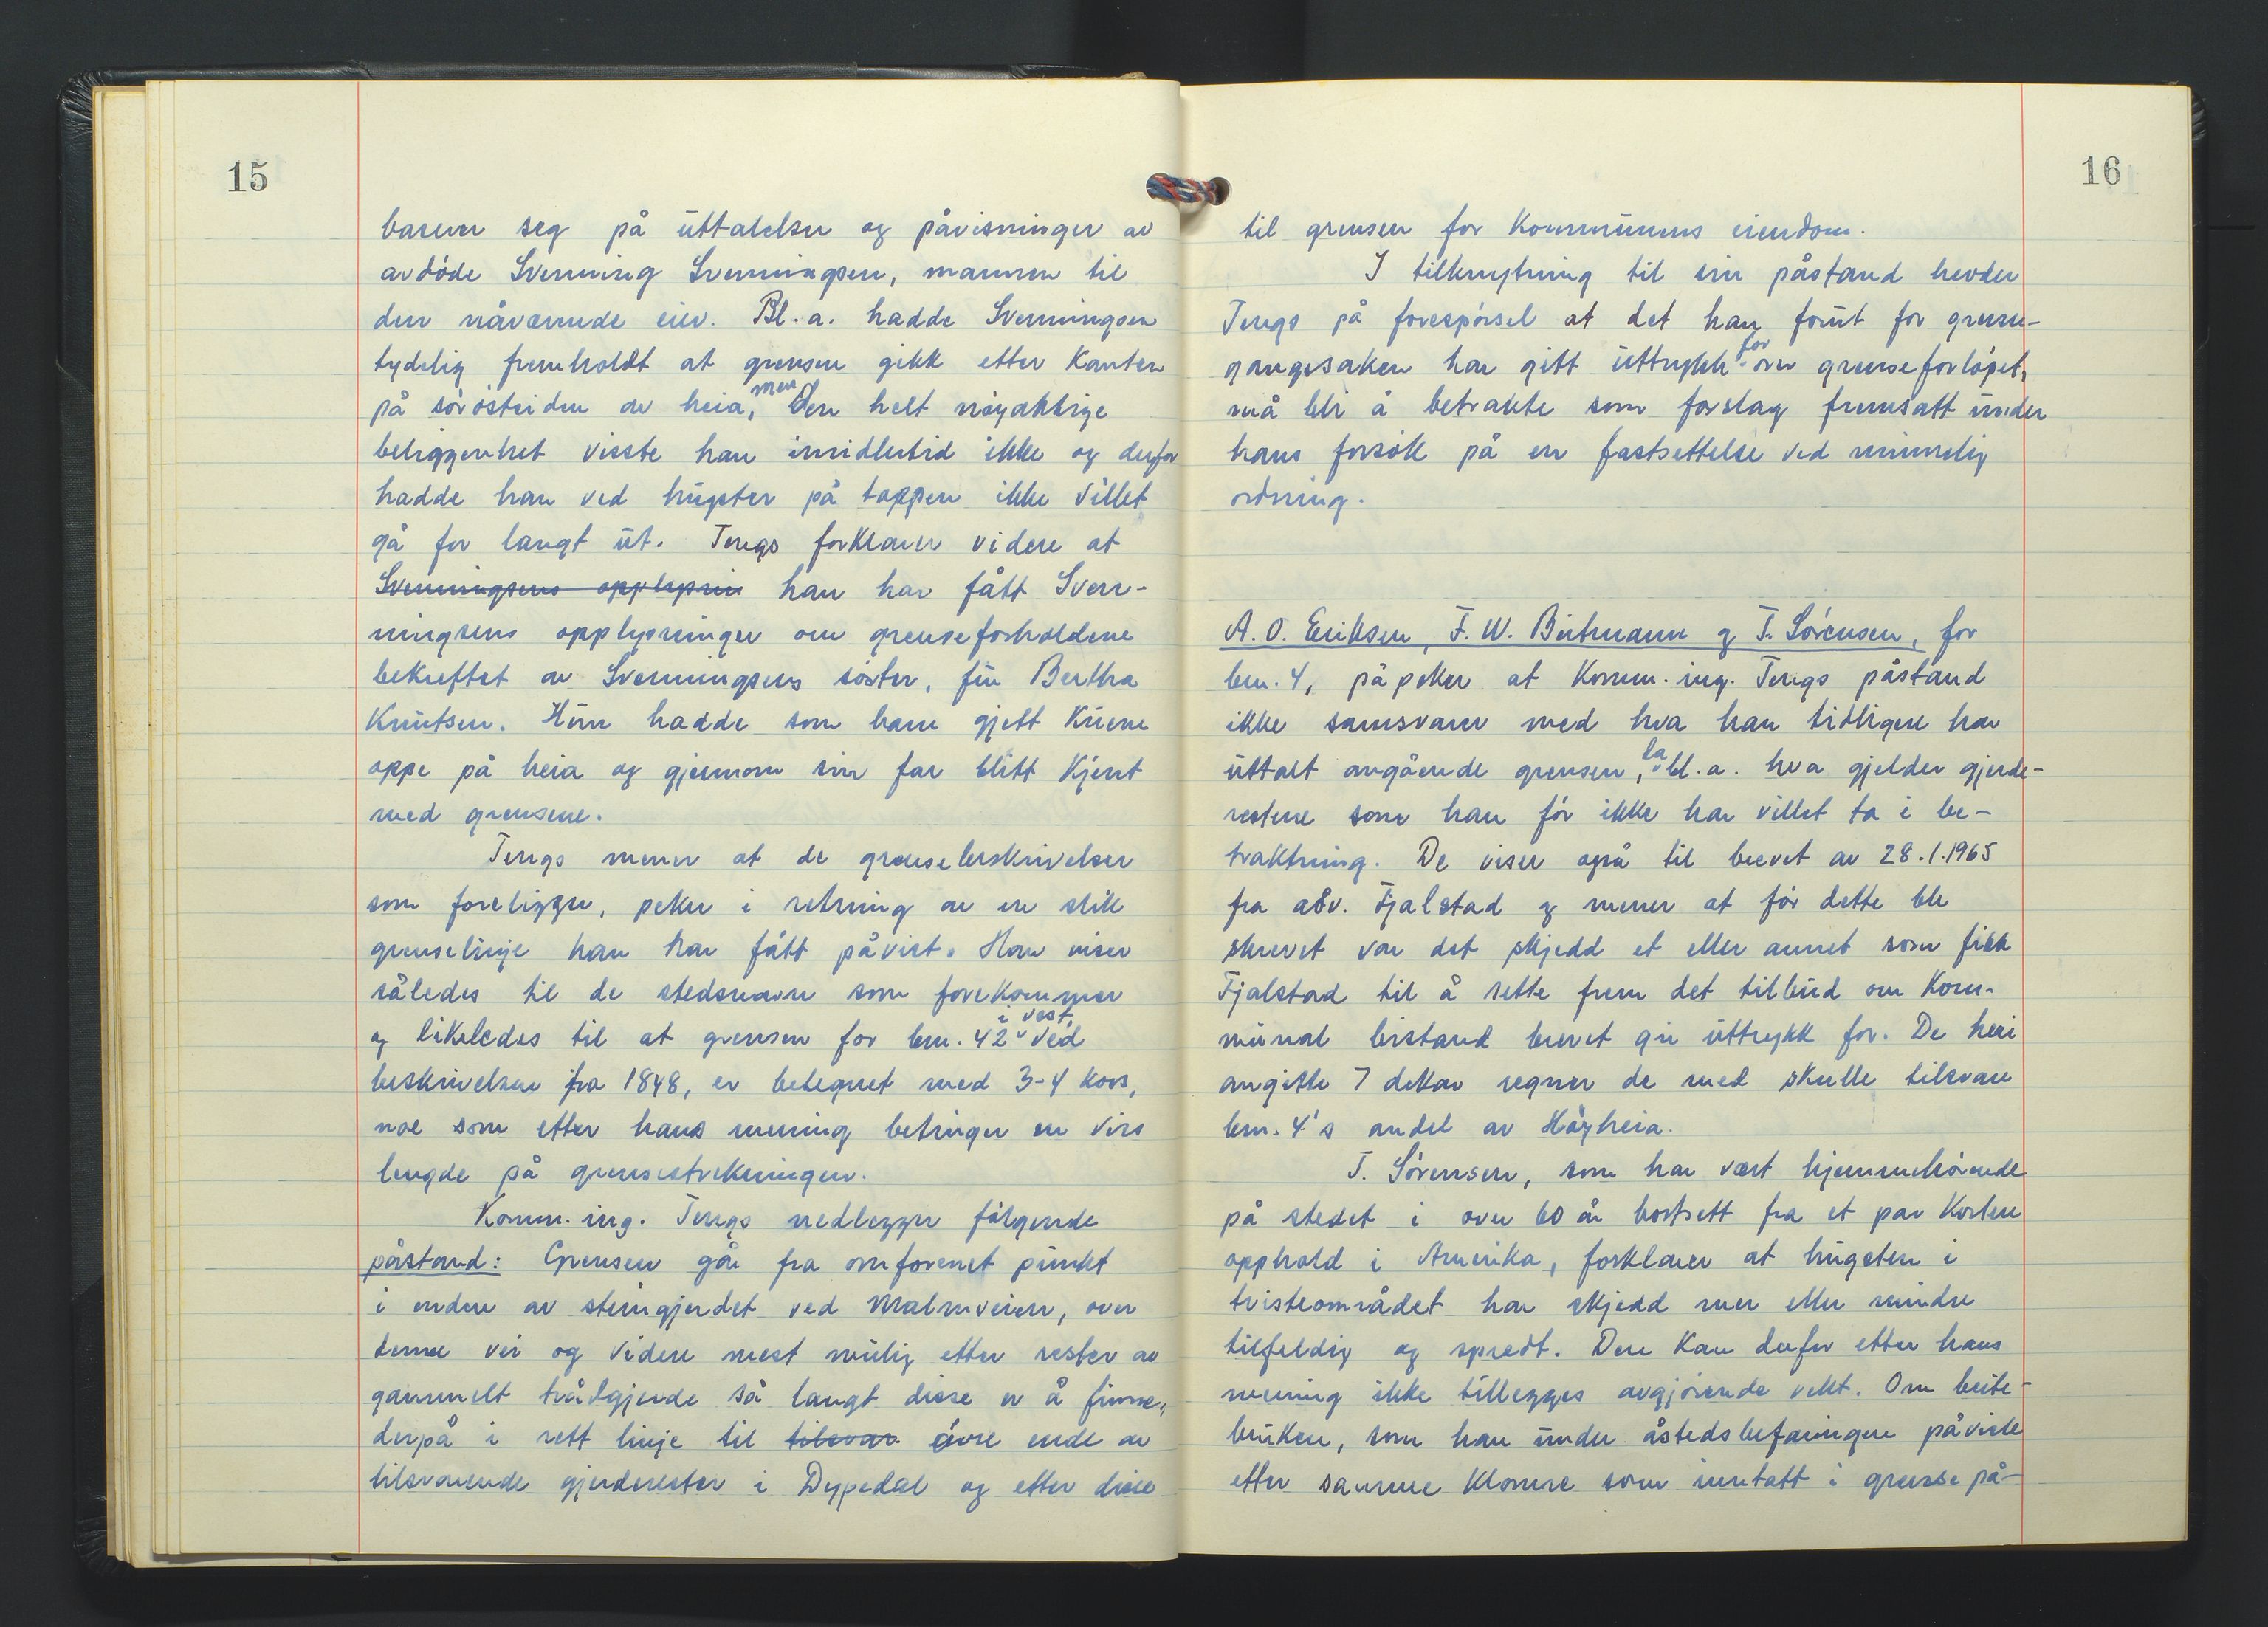 15
baserer seg på uttalelser og påvisninger av
avdøde Svenning Svenningsen, mannen til
den nåværende eier. Bl.a. hadde Svenningsen
tydelig fremholdt at grensen gikk etter kanten
på sørøstsiden av heia, men den helt nøyaktige
beliggenhet visste han imidlertid ikke og derfor
hadde han ved hugster på toppen ikke villet
gå for langt ut. Tengs forklarer videre at
Svenningsens opplysnin han har fått Sven-
ningsens opplysninger om grenseforholdene
bekreftet av Svenningsens søster, fru Bertha
Knutsen. Hun hadde som barn gjett kuene
oppe på heia og gjennom sin far blitt kjent
med grensene.
Tengs mener at de grensebeskrivelser
som foreligger, peker i retning av en slik
grenselinje han har fått påvist. Han viser
således til de stedsnavn som forekommer
og likeledes til at grensen for bnr. 42 i vest, ved
beskrivelsen fra 1848, er betegnet med 3-4 kors,
noe som etter hans mening betinger en viss
lengde på grensestrekningen.
Komm. ing. Tengs nedlegger følgende
påstand: Grensen går fra omforenet punkt
i enden av steingjerdet ved Malmveien, over
denne vei og videre mest mulig etter rester av
gammelt trådgjerde så langt disse er å finne,
derpå i rett linje til tilsvar øvre ende av
tilsvarende gjerderester i Dypedal og etter disse
16
til grensen for kommunens eiendom.
I tilknytning til sin påstand hevder
Tengs på forespørsel at det han forut for grense-
gangssaken har gitt uttrykk for om grenseforløpet,
må bli å betrakte som forslag fremsatt under
hans forsøk på en fastsettelse ved minnelig
ordning.
A. O. Eriksen, F. W. Birkmann og T. Sørensen, for
bnr. 4, påpeker at komm. ing. Tengs påstand
ikke samsvarer med hva han tidligere har
uttalt angående grensen, bl.a. hva gjelder gjerde-
restene som han før ikke har villet ta i be-
traktning. De viser også til brevet av 28.1.1965
fra adv. Fjalstad og mener at før dette ble
skrevet var det skjedd et eller annet som fikk
Fjalstad til å sette frem det tilbud om kom-
munal bistand brevet gir uttrykk for. De heri
angitte 7 dekar regner de med skulle tilsvare
bnr. 4's andel av Høgheia.
T. Sørensen, som har vært hjemmehørende
på stedet i over 60 år bortsett fra et par kortere
opphold i Amerika, forklarer at hugsten i
tvisteområdet har skjedd mer eller mindre
tilfeldig og spredt. Den kan derfor etter hans
mening ikke tillegges avgjørende vekt. Om beite-
bruken, som han under åstedsbefaringen påviste
etter samme klomre som inntatt i grensepå-